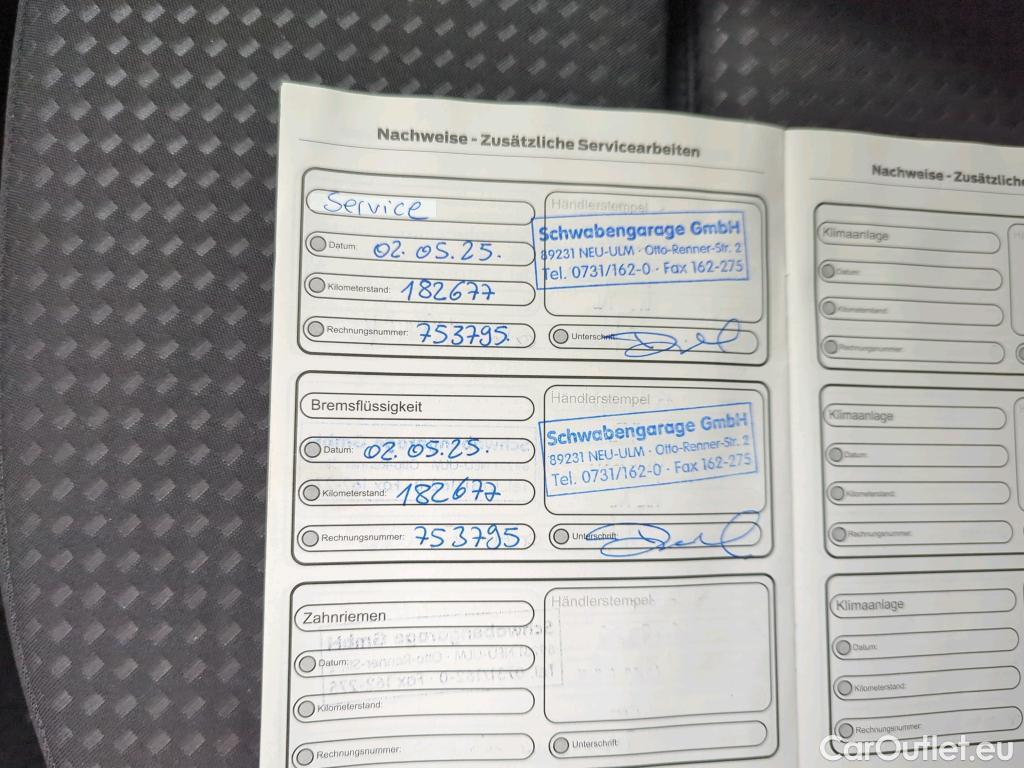 Nachweise - Zusätzliche Servicearbeiten
Service
Händlerstempel
Datum: 02.05.25.
Schwabengarage GmbH
89231 NEU-ULM · Otto-Renner-Str. 2
Tel. 0731/162-0 · Fax 162-275
Kilometerstand: 182677
Rechnungsnummer: 753795.
Unterschrift:
Bremsflüssigkeit
Händlerstempel
Datum: 02.05.25.
Schwabengarage GmbH
89231 NEU-ULM · Otto-Renner-Str. 2
Tel. 0731/162-0 · Fax 162-275
Kilometerstand: 182677
Rechnungsnummer: 753795
Unterschrift:
Zahnriemen
Händlerstempel
Datum:
Kilometerstand:
Rechnungsnummer:
Unterschrift:
Nachweise - Zusätzliche
Klimaanlage
Datum:
Kilometerstand:
Rechnungsnummer:
Klimaanlage
Datum:
Kilometerstand:
Rechnungsnummer:
Klimaanlage
Datum:
Kilometerstand:
Rechnungsnummer:
CarOutlet.eu